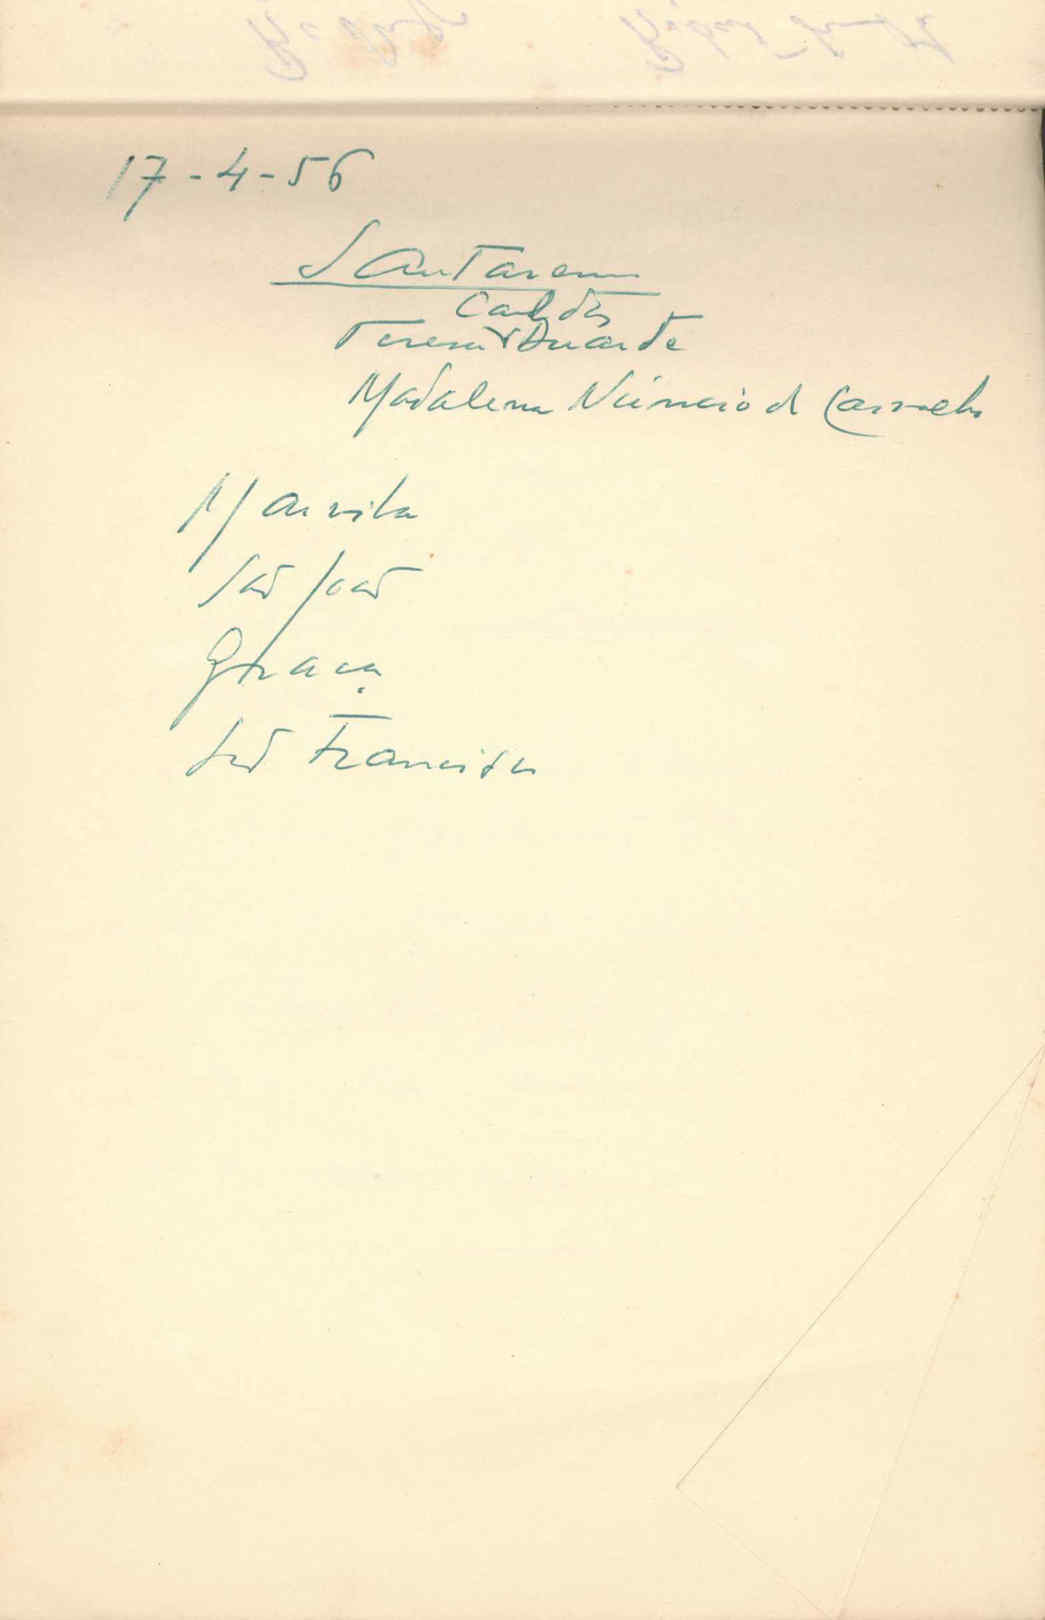 17-4-56
Santarem
Caldas
Teresa Duarte
Madalena Núncio de Carvalho
Marvila
São João
Graça
São Francisco